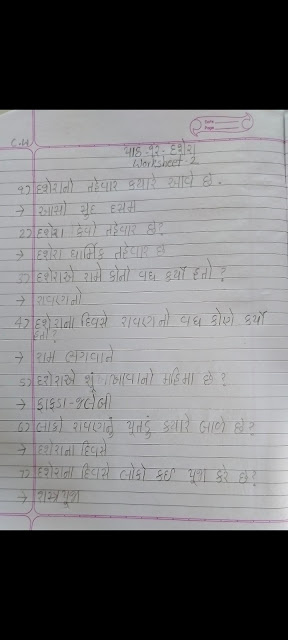 Date
Page
C.W
પાઠ-૧૨- દશેરા
Worksheet-2
૧) દશેરાનો તહેવાર કયારે આવે છે.
→ આસો સુદ દસમ
૨) દશેરા કેવો તહેવાર છે?
→ દશેરા ધાર્મિક તહેવાર છે
૩) દશેરાએ રામે કોનો વધ કર્યો હતો?
→ રાવણનો
૪) દશેરાના દિવસે રાવણનો વધ કોણે કર્યો
હતો?
→ રામ ભગવાને
૫) દશેરાએ શું ખાવાનો મહિમા છે?
→ ફાફડા-જલેબી
૬) લોકો રાવણનું પૂતળું કયારે બાળે છે?
→ દશેરાના દિવસે
૭) દશેરાના દિવસે લોકો કઈ પૂજા કરે છે?
→ શસ્ત્રપૂજા